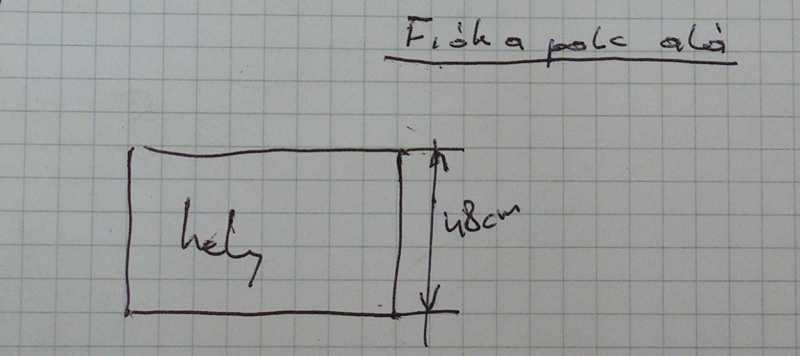 Fiók a polc alá
hely
48cm